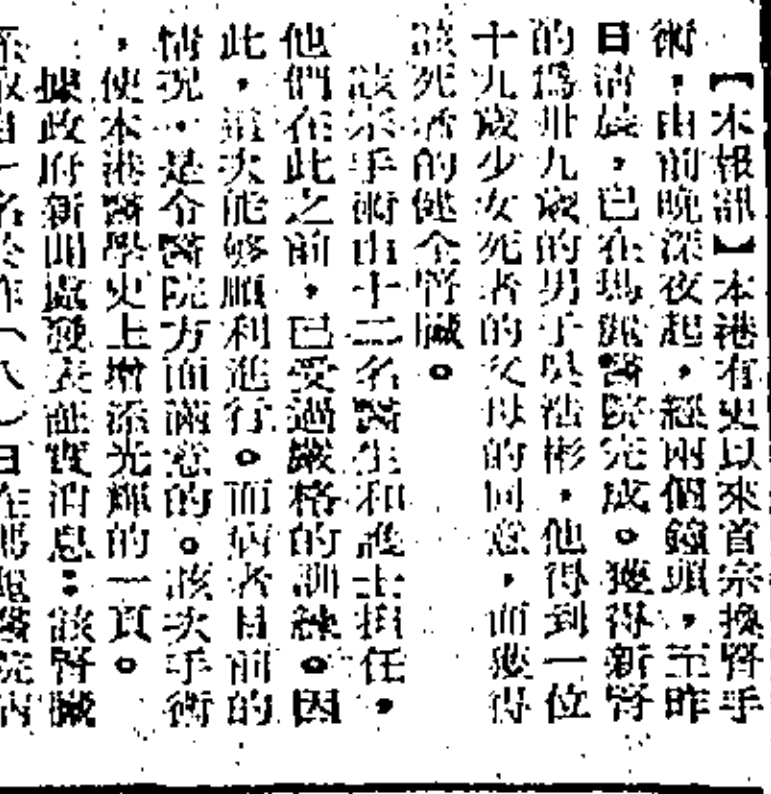 【本報訊】本港有史以來首宗換腎手
術,由前晚深夜起,經兩個鐘頭,至昨
日清晨,已在瑪麗醫院完成。獲得新腎
的爲卅九歲的男子吳浩彬,他得到一位
十九歲少女死者的父母的同意,而獲得
該死者的健全腎臟。
該宗手術由十二名醫生和護士担任,
他們在此之前,已受過嚴格的訓練。因
此,這次能够順利進行。而病者目前的
情況,是令醫院方面滿意的。該次手術
,使本港醫學史上增添光輝的一頁。
據政府新聞處發表証實消息:該腎臟
係取自一名於昨(八)日在瑪麗醫院病